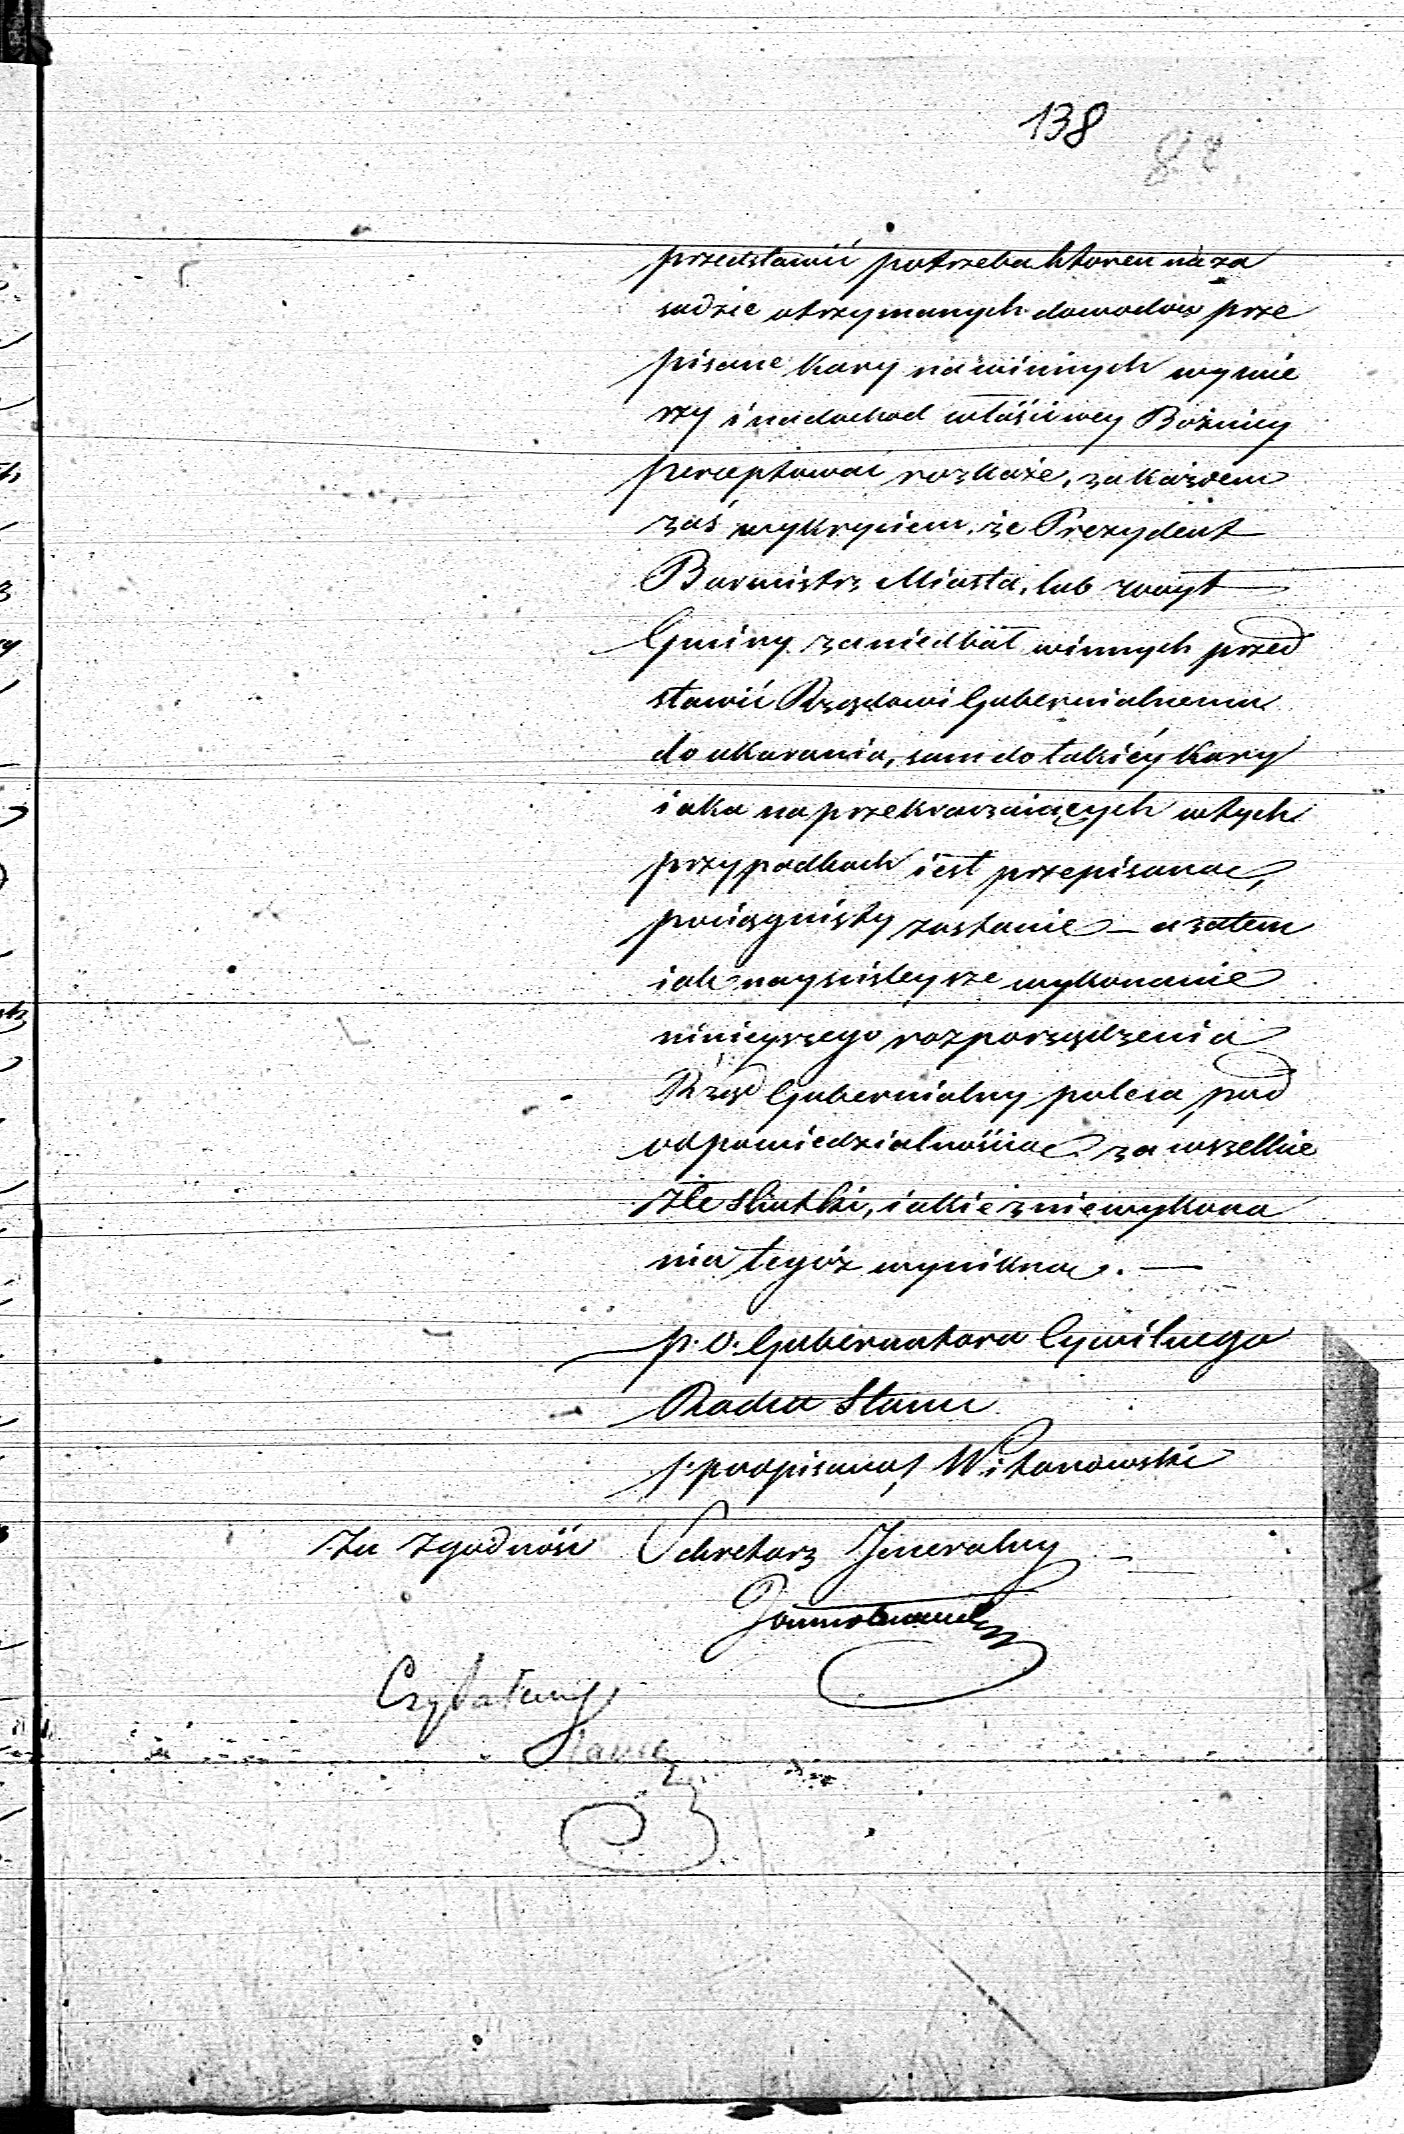 138
82
przedstawić potrzeba który na za
sadzie otrzymanych dowodow prze
pisane kary na winnych wymie
rzy i na dochod właściwey Bożnicy
perceptować rozkaże, za każdem
zaś wykryciem że Prezydent
Burmistrz Miasta, lub woyt
Gminy zaniedbał winnych przed
stawić Rządowi Gubernialnemu
do ukarania, sam do takiéy kary
iaka na przekraczaiących w tych
przypadkach iest przepisana,
pociągnięty zostanie – a zatem
iak nayściśleysze wykonanie
ninieyszego rozporządzenia
Rząd Gubernialny poleca pod
odpowiedzialnością za wszelkie
złe skutki, iakie z niewykona
nia tegoż wynikną. —
p. o. Gubernatora Cywilnego
Radca Stanu
/:podpisano/ Witanowski
Za zgodność Sekretarz Jeneralny
Czytałem